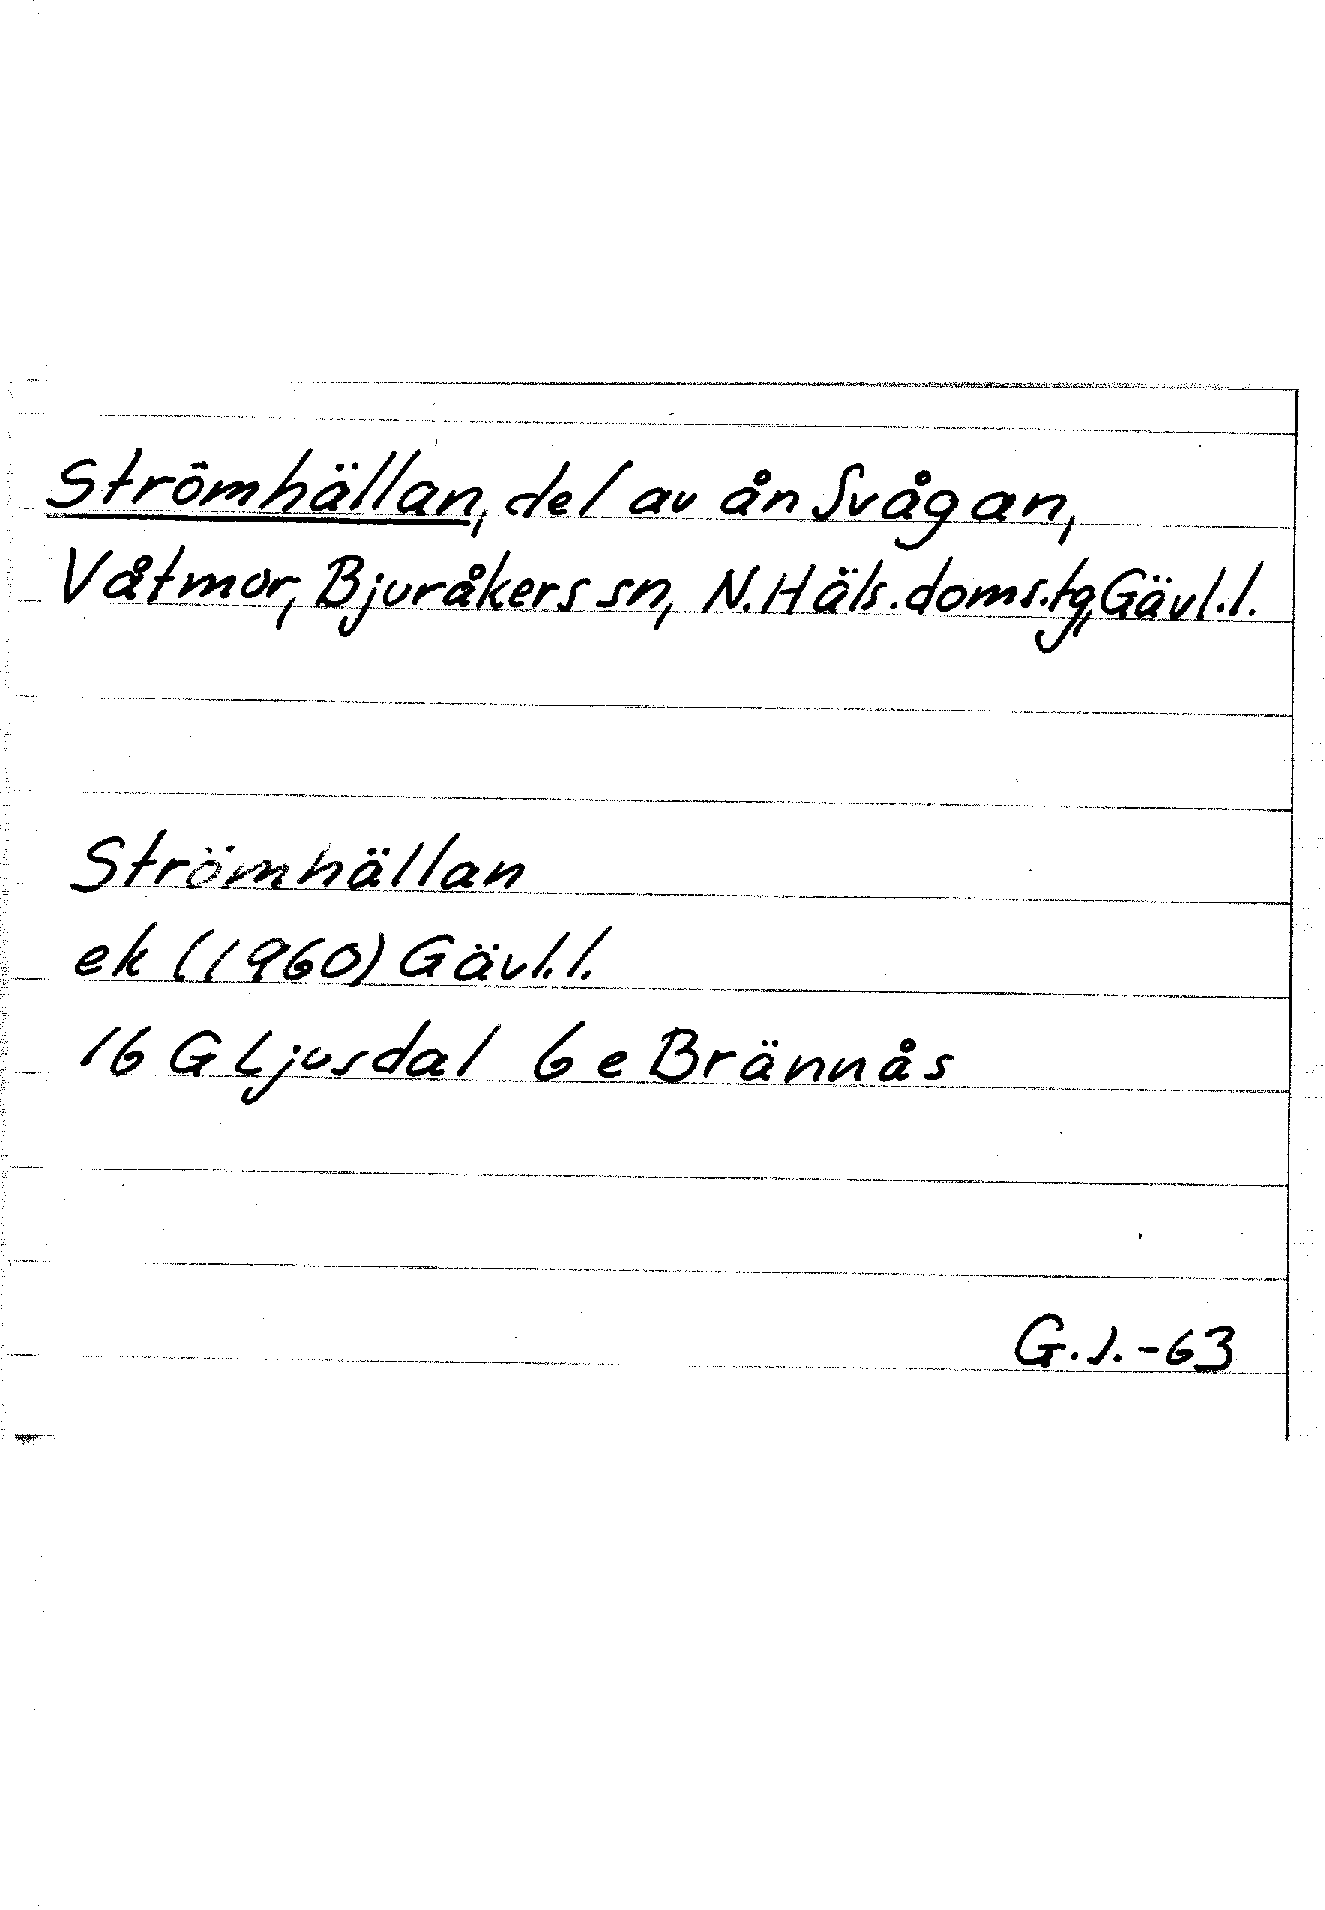 Strömhällan, del av ån Svågan,
Våtmor, Bjuråkers sn, N. Häls. doms.tg, Gävl.l.
Strömhällan
ek (1960) Gävl.l.
16 G Ljusdal 6 e Brännås
G.J.-63